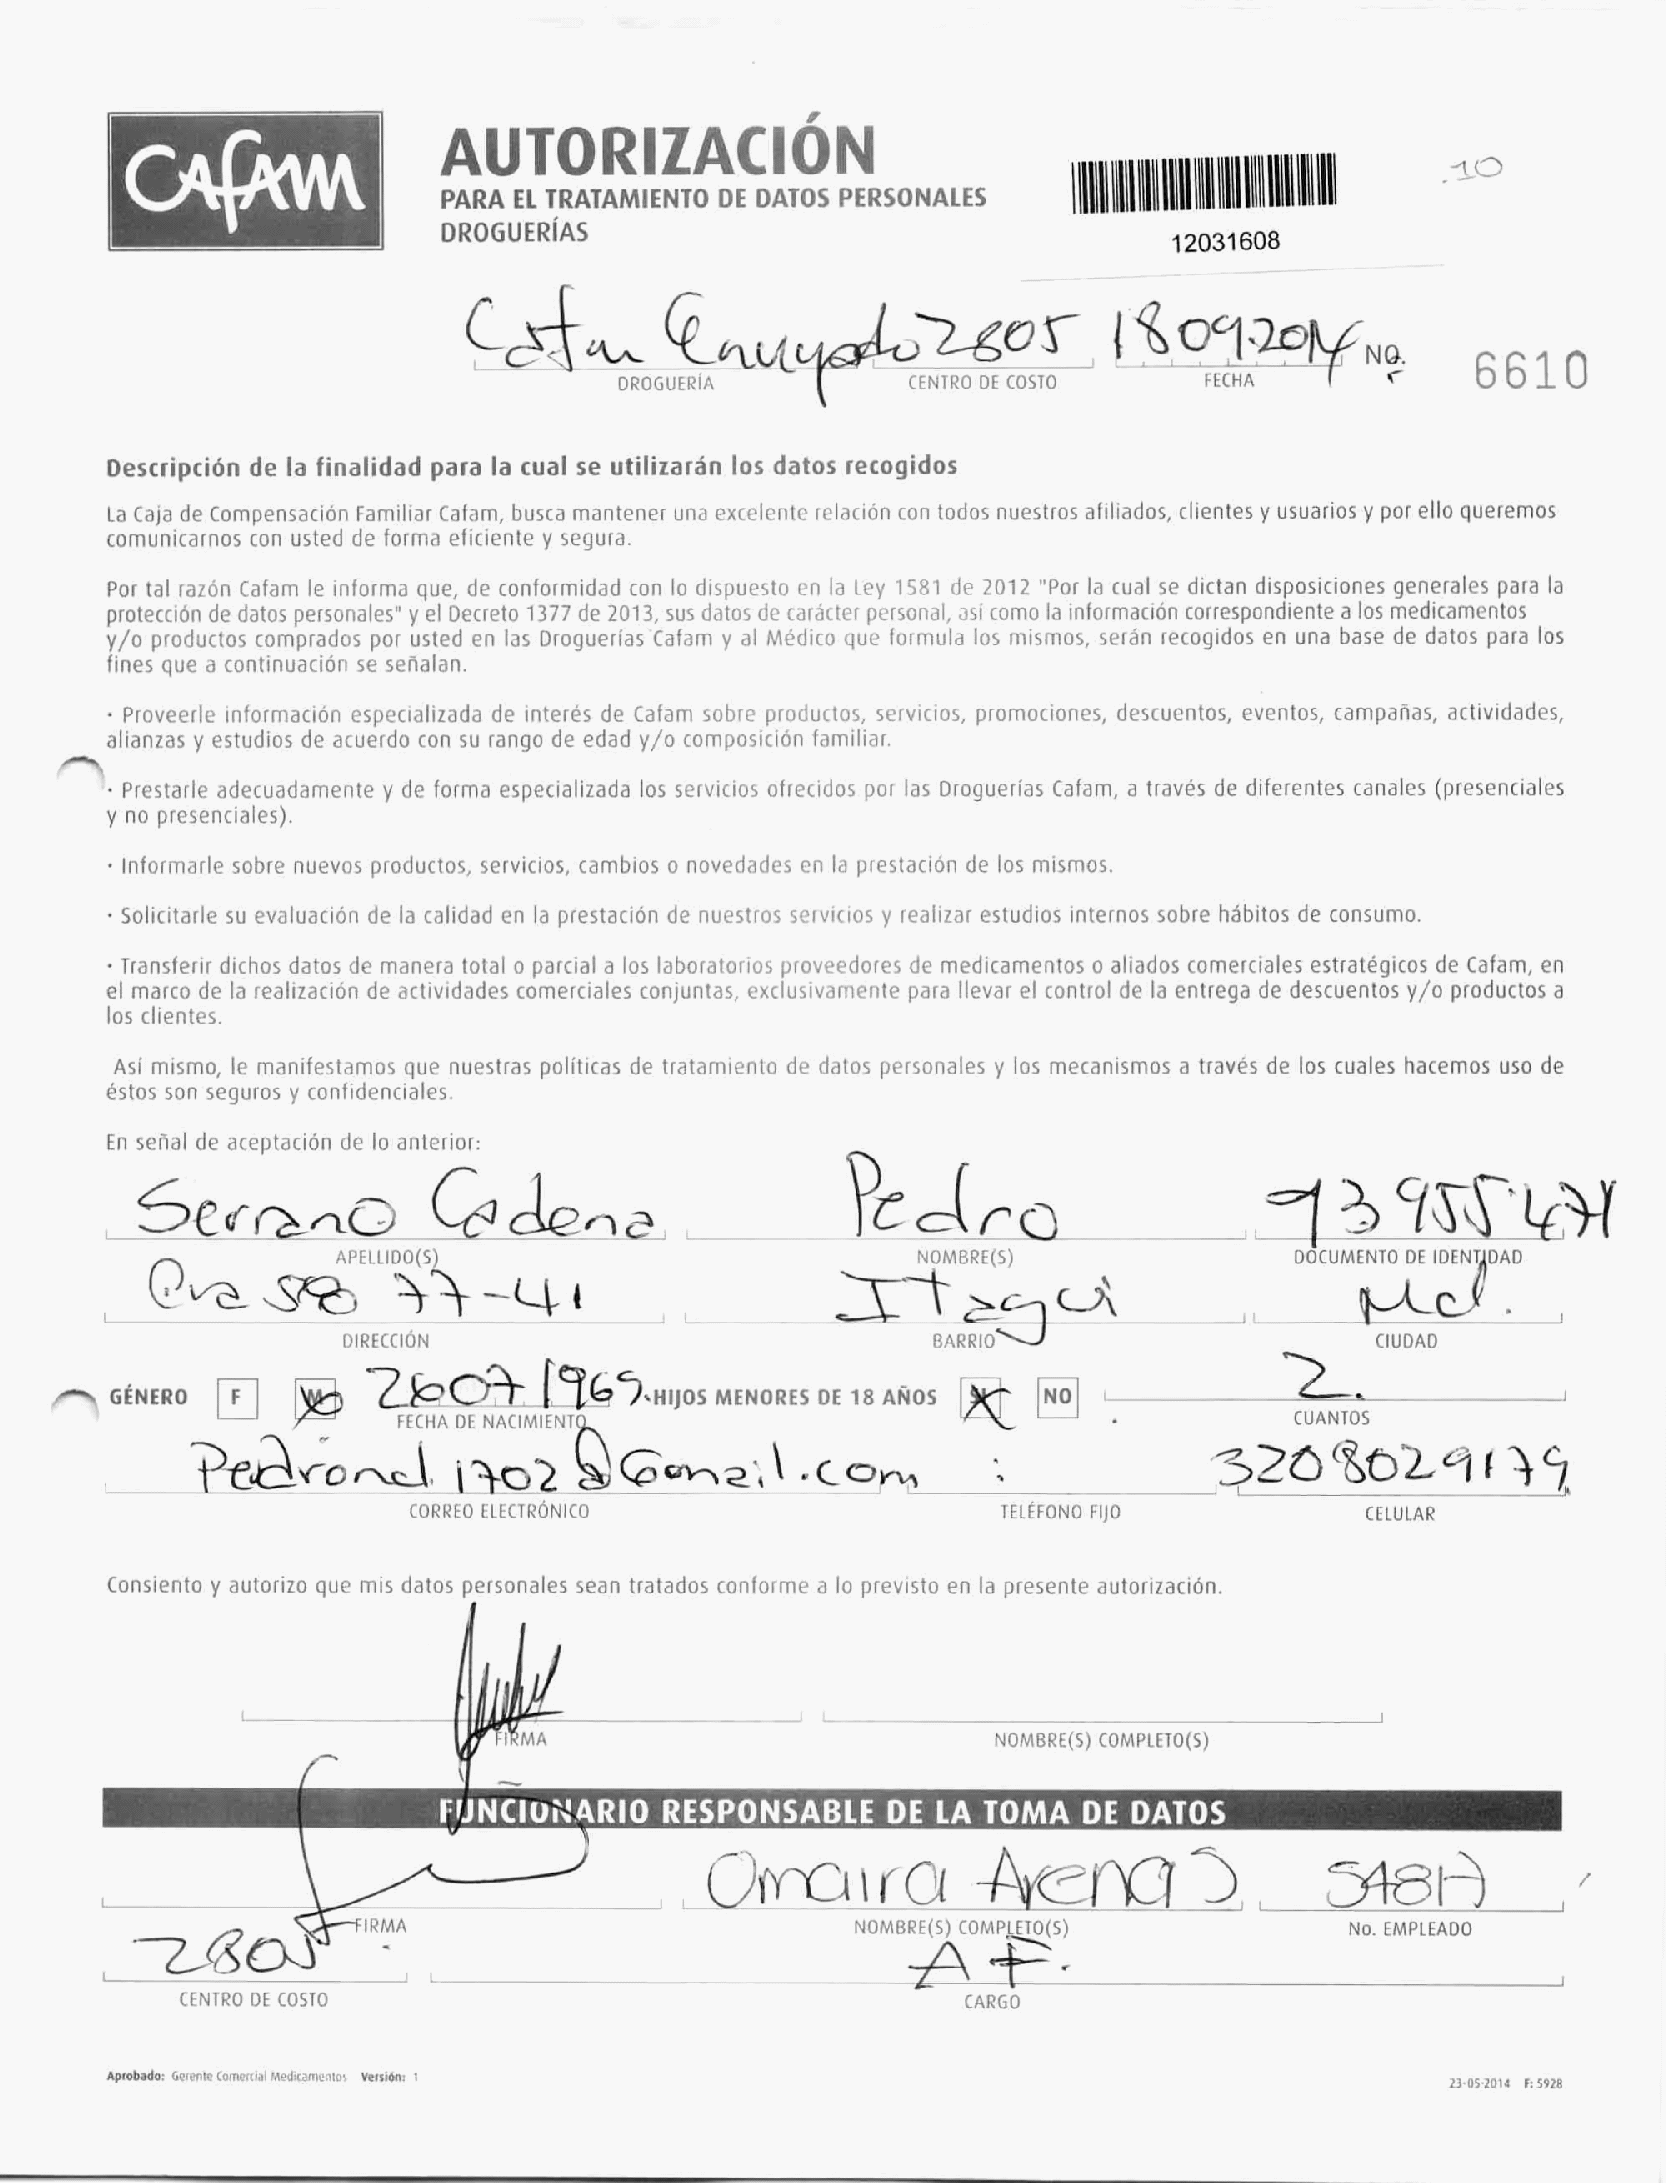 CAFAM
AUTORIZACIÓN
PARA EL TRATAMIENTO DE DATOS PERSONALES
DROGUERÍAS
12031608
.10
2805 18092014 No. 6610
DROGUERÍA CENTRO DE COSTO FECHA
Descripción de la finalidad para la cual se utilizarán los datos recogidos
La Caja de Compensación Familiar Cafam, busca mantener una excelente relación con todos nuestros afiliados, clientes y usuarios y por ello queremos
comunicarnos con usted de forma eficiente y segura.
Por tal razón Cafam le informa que, de conformidad con lo dispuesto en la Ley 1581 de 2012 "Por la cual se dictan disposiciones generales para la
protección de datos personales" y el Decreto 1377 de 2013, sus datos de carácter personal, así como la información correspondiente a los medicamentos
y/o productos comprados por usted en las Droguerías Cafam y al Médico que formula los mismos, serán recogidos en una base de datos para los
fines que a continuación se señalan.
· Proveerle información especializada de interés de Cafam sobre productos, servicios, promociones, descuentos, eventos, campañas, actividades,
alianzas y estudios de acuerdo con su rango de edad y/o composición familiar.
· Prestarle adecuadamente y de forma especializada los servicios ofrecidos por las Droguerías Cafam, a través de diferentes canales (presenciales
y no presenciales).
· Informarle sobre nuevos productos, servicios, cambios o novedades en la prestación de los mismos.
· Solicitarle su evaluación de la calidad en la prestación de nuestros servicios y realizar estudios internos sobre hábitos de consumo.
· Transferir dichos datos de manera total o parcial a los laboratorios proveedores de medicamentos o aliados comerciales estratégicos de Cafam, en
el marco de la realización de actividades comerciales conjuntas, exclusivamente para llevar el control de la entrega de descuentos y/o productos a
los clientes.
Así mismo, le manifestamos que nuestras políticas de tratamiento de datos personales y los mecanismos a través de los cuales hacemos uso de
éstos son seguros y confidenciales.
En señal de aceptación de lo anterior:
Serrano Cadena Pedro
APELLIDO(S) NOMBRE(S) DOCUMENTO DE IDENTIDAD
Cra 58 77-41 Itagui Md.
DIRECCIÓN BARRIO CIUDAD
GÉNERO F M 26071969 HIJOS MENORES DE 18 AÑOS NO 2.
FECHA DE NACIMIENTO CUANTOS
3208029179
CORREO ELECTRÓNICO TELÉFONO FIJO CELULAR
Consiento y autorizo que mis datos personales sean tratados conforme a lo previsto en la presente autorización.
FIRMA NOMBRE(S) COMPLETO(S)
FUNCIONARIO RESPONSABLE DE LA TOMA DE DATOS
Omaira Arenas
FIRMA NOMBRE(S) COMPLETO(S) No. EMPLEADO
2805 A F.
CENTRO DE COSTO CARGO
Aprobado: Gerente Comercial Medicamentos Versión: 1
23-05-2014 F: 5928